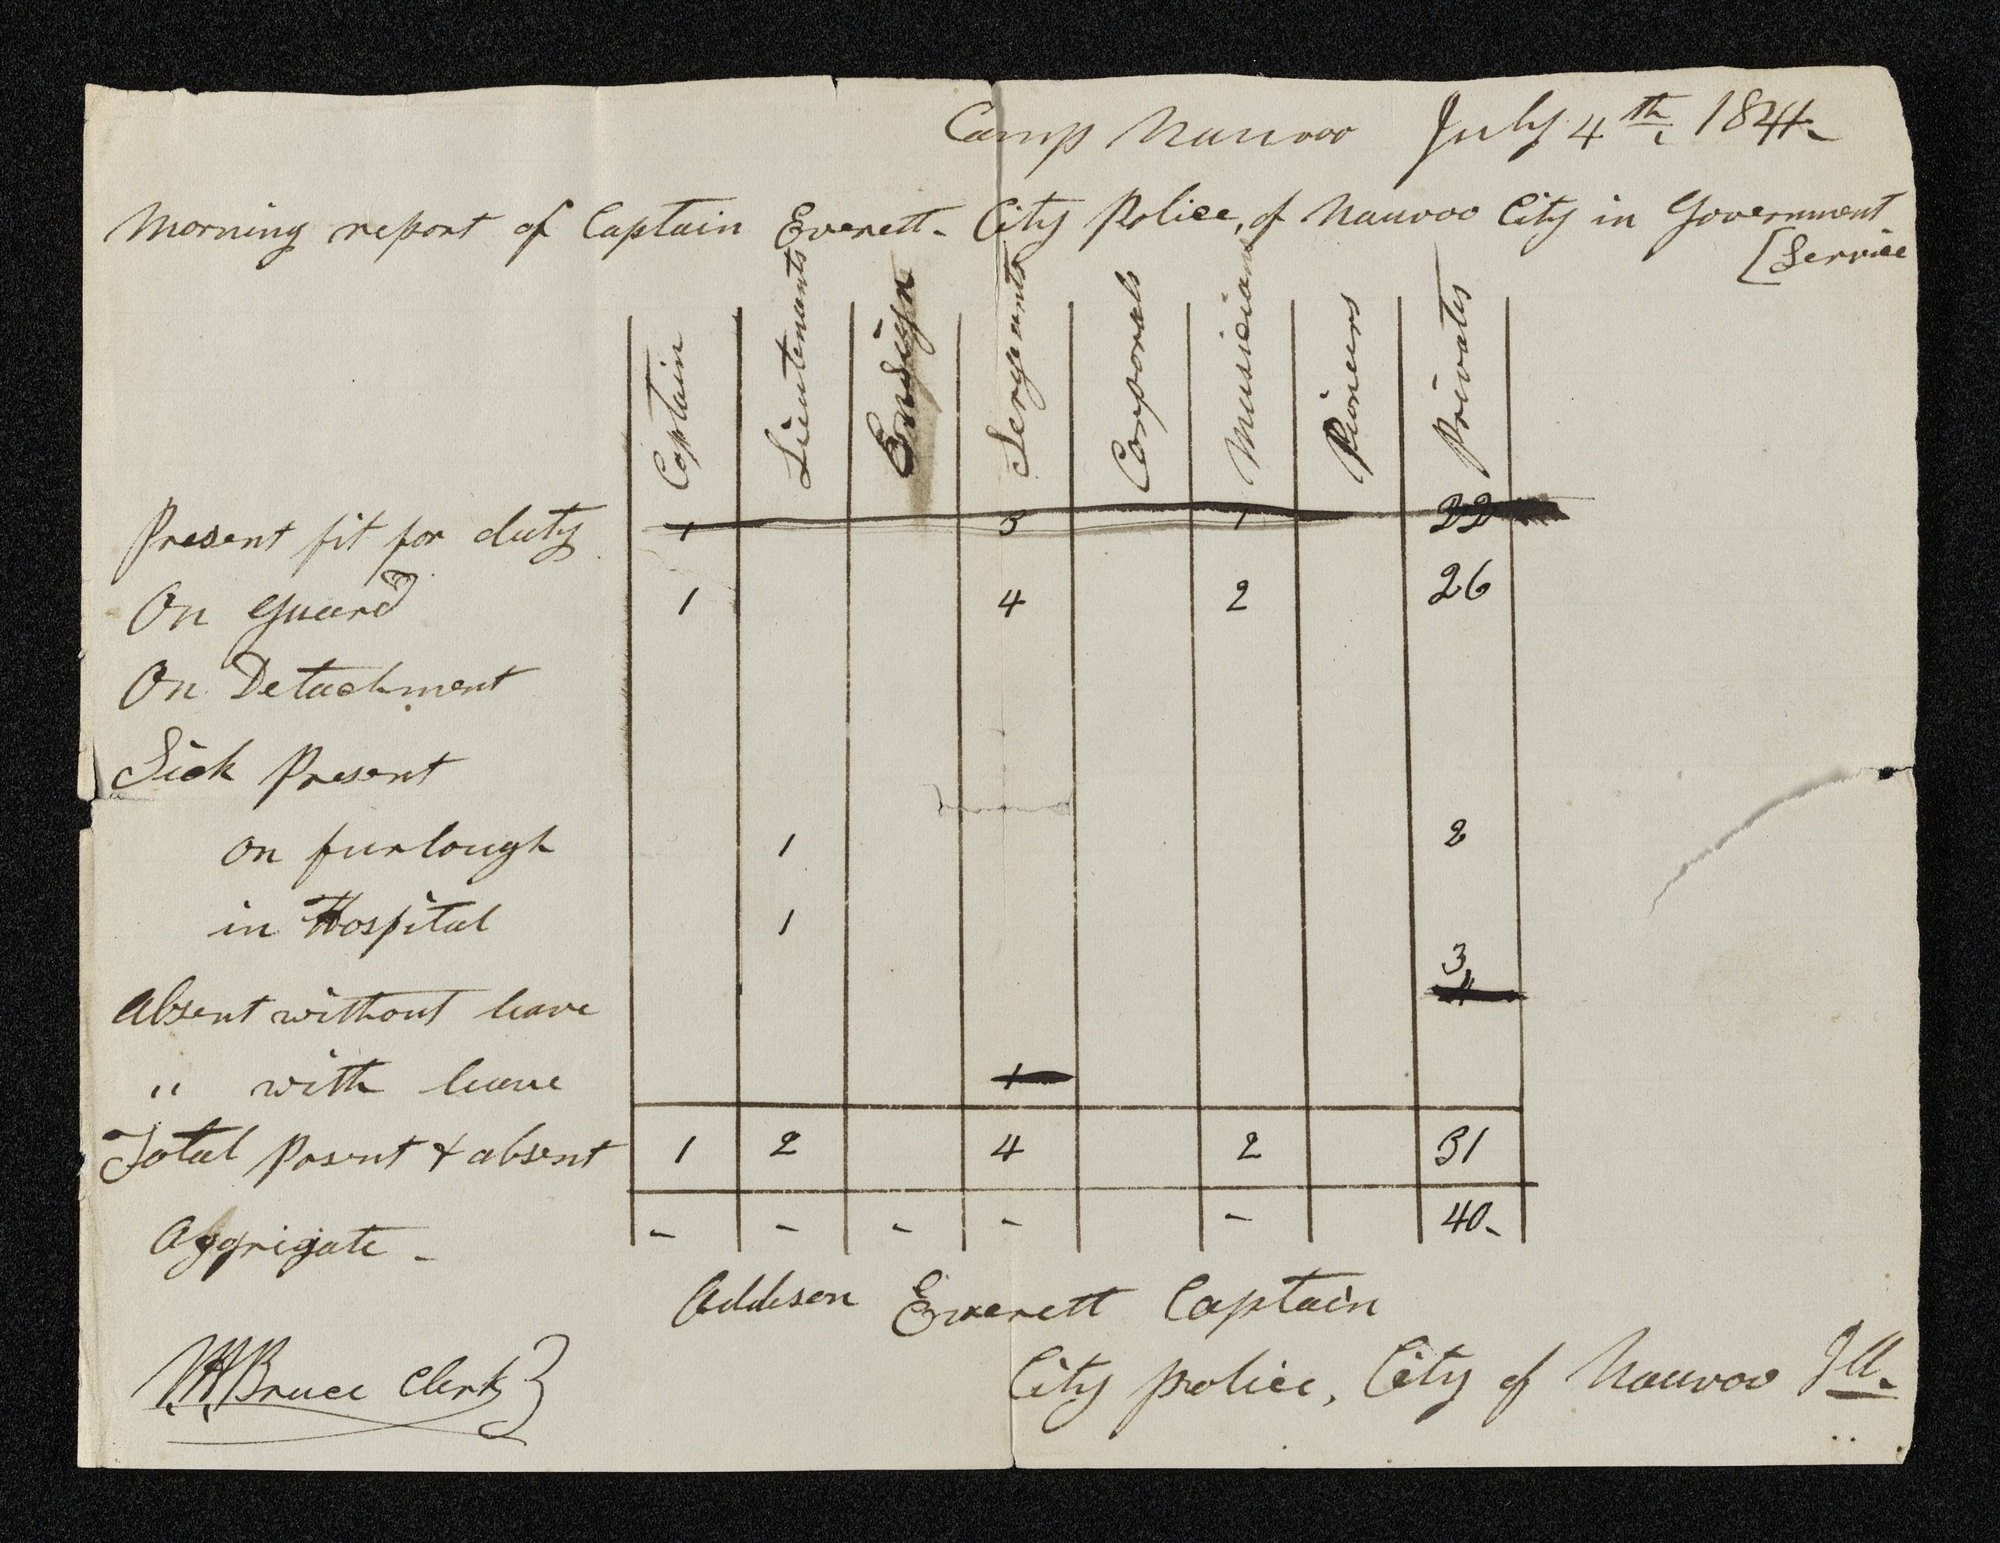 Camp Nauvoo July 4th, 1844.
Morning report of Captain Everett- City Police, of Nauvoo City in Government
[Service
Captain Lieutenants Ensign Sergeants Corporals Musicians Pioneers Privates
Present fit for duty 1 3 1 22
On Guard 1 4 2 26
On Detachment
Sick Present
on furlough 1 2
in Hospital 1
3
Absent without leave 4
" with leave 1
Total Present & absent 1 2 4 2 31
Aggrigate - - - - - - 40-
Addison Everett Captain
W Bruce Clerk
City police, City of Nauvoo Ill.